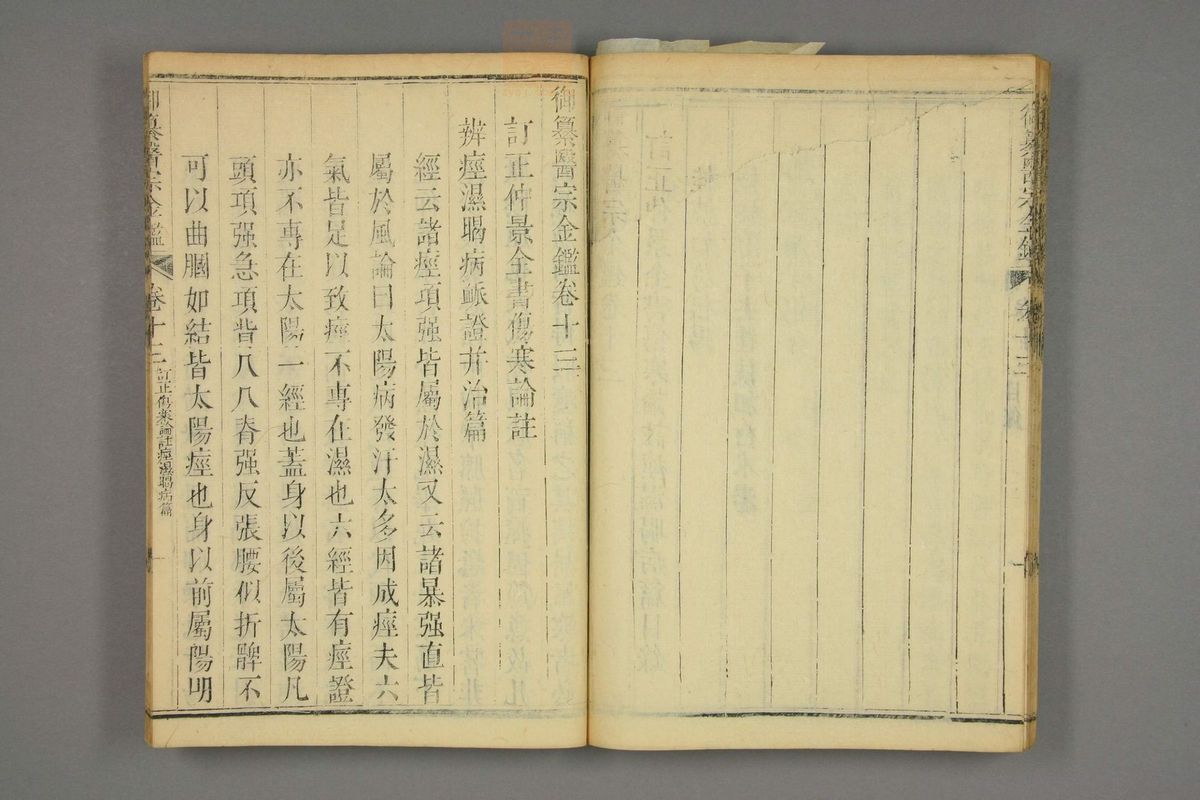 御纂醫宗金鑑 卷十三 目錄
御纂醫宗金鑑卷十三
訂正仲景全書傷寒論註
辨痙濕暍病脈證并治篇
經云諸痙項强皆屬於濕又云諸暴强直皆
屬於風論曰太陽病發汗太多因成痙夫六
氣皆足以致痙不專在濕也六經皆有痙證
亦不專在太陽一經也蓋身以後屬太陽凡
頭項强急項背几几脊强反張腰似折髀不
可以曲膕如結皆太陽痙也身以前屬陽明
御纂醫宗金鑑 卷十三 訂正傷寒論註痙濕暍病篇 一